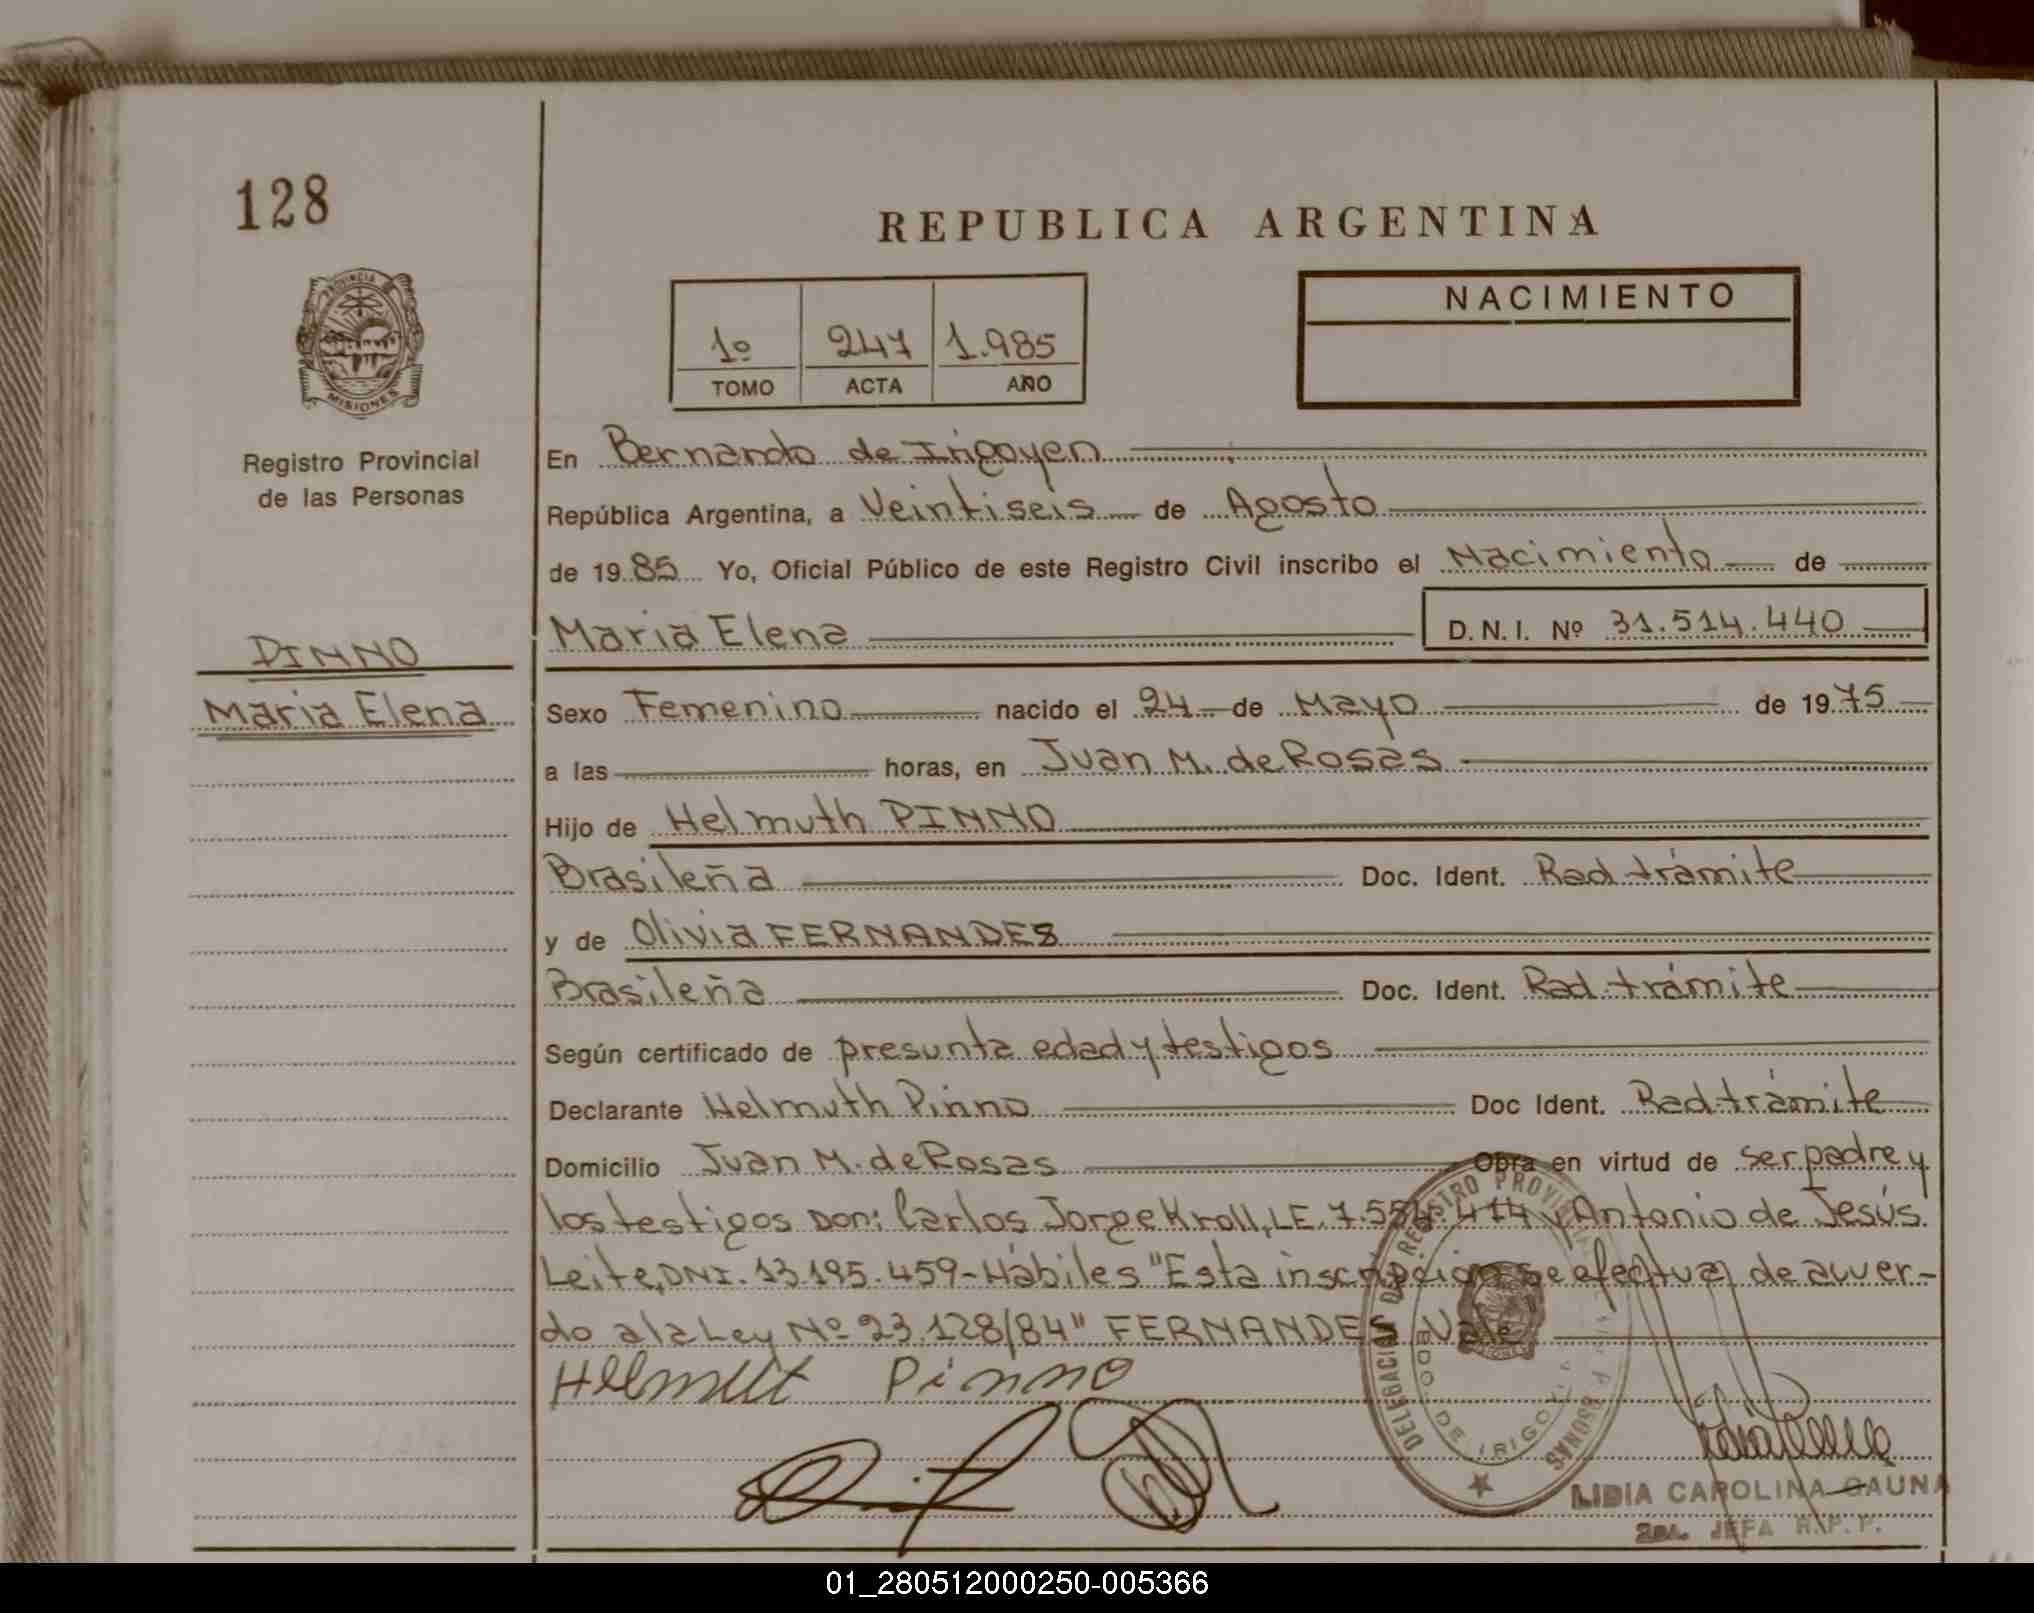 128
REPUBLICA ARGENTINA
PROVINCIA DE
MISIONES
Registro Provincial
de las Personas
NACIMIENTO
1º 247 1.985
TOMO ACTA AÑO
En Bernardo de Irigoyen
República Argentina, a Veintiseis de Agosto
de 1985 Yo, Oficial Público de este Registro Civil inscribo el Nacimiento de
Maria Elena D.N.I. Nº 31.514.440
PINNO
Maria Elena
Sexo Femenino nacido el 24 de Mayo de 1975
a las horas, en Juan M. de Rosas
Hijo de Helmuth PINNO
Brasileña Doc. Ident. Rad. trámite
y de Olivia FERNANDES
Brasileña Doc. Ident. Rad. trámite
Según certificado de presunta edad y testigos
Declarante Helmuth Pinno Doc Ident. Rad. trámite
Domicilio Juan M. de Rosas Obra en virtud de ser padre y
los testigos Don: Carlos Jorge Kroll, LE. 7.554.414 y Antonio de Jesús
Leite, DNI. 13.195.459-Hábiles "Esta inscripción se efectua de acuer-
do a la Ley Nº 23.128/84" FERNANDES Vale
Helmut Pinno
DELEGACION DEL REGISTRO PROVINCIAL PERSONAS
BDO. DE IRIGOYEN
LIDIA CAROLINA GAUNA
JEFA R.P.P.
01_280512000250-005366